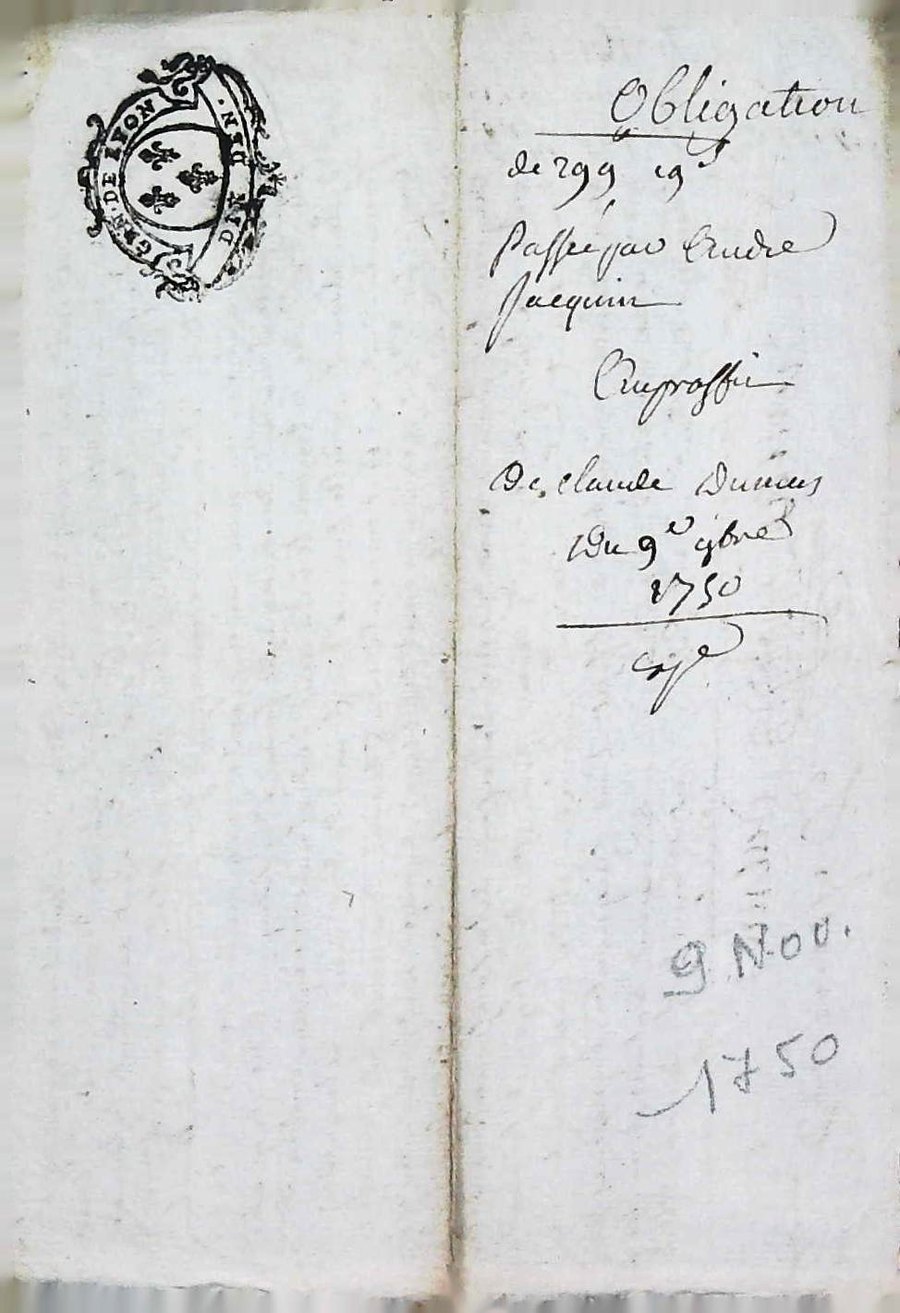 GEN · DE LYON
DIX DEN ·
Obligation
de 299 19ˢ
Passée par Andre
Jacquin
Au proffit
De Claude Dumas
Du 9ᵉ 9bre
1750
9 Nov.
1750